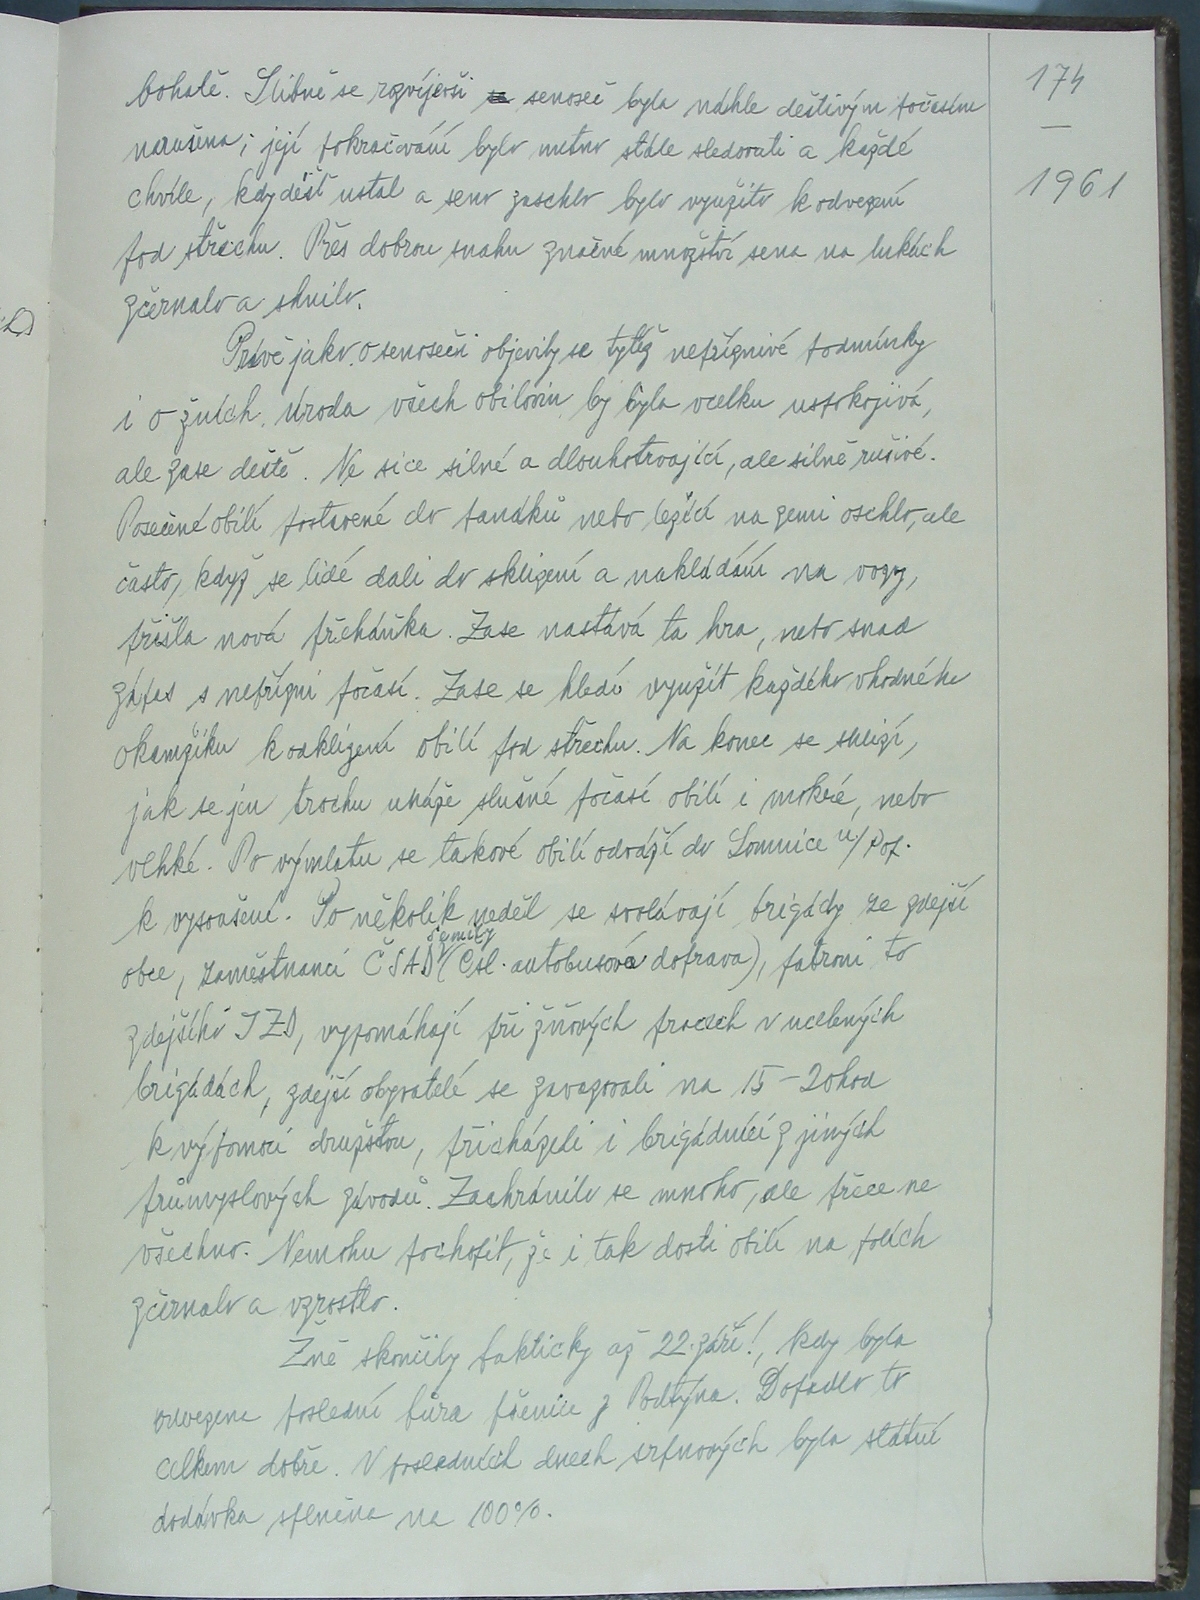 174
—
1961
bohatě. Slibně se rozvíjející senoseč byla náhle deštivým počasím
narušena; její pokračování bylo nutno stále sledovati a každé
chvíle, kdy déšť ustal a seno zaschlo bylo využito k odvezení
pod střechu. Přes dobrou snahu značné množství sena na lukách
zčernalo a shnilo.
Právě jako o senoseči objevily se tytéž nepříznivé podmínky
i o žních. Úroda všech obilovin by byla vcelku uspokojivá,
ale zase deště. Ne sice silné a dlouhotrvající, ale silně rušivé.
Posečené obilí postavené do panáků nebo ležící na zemi oschlo, ale
často, když se lidé dali do sklizení a nakládání na vozy,
přišla nová přeháňka. Zase nastává ta hra, nebo snad
zápas s nepřízní počasí. Zase se hledí využít každého vhodného
okamžiku k odklizení obilí pod střechu. Na konec se sklízí,
jak se jen trochu ukáže slušné počasí obilí i mokré, nebo
vlhké. Po výmlatu se takové obilí odváží do Lomnice n/Pop.
k vysoušení. Po několik neděl se svolávají brigády ze zdejší
obce, zaměstnanci ČSAD Semily (Čsl. autobusová doprava), patroni to
zdejšího JZD, vypomáhají při žňových pracech v ucelených
brigádách, zdejší obyvatelé se zavazovali na 15-20 hod
k výpomoci družstvu, přicházeli i brigádníci z jiných
průmyslových závodů. Zachránilo se mnoho, ale přece ne
všechno. Nemohu pochopit, že i tak dosti obilí na polích
zčernalo a vzrostlo.
Žně skončily fakticky až 22. září!, kdy byla
odvezena poslední fůra pšenice z Podtýna. Dopadlo to
celkem dobře. V posledních dnech srpnových byla státní
dodávka splněna na 100%.